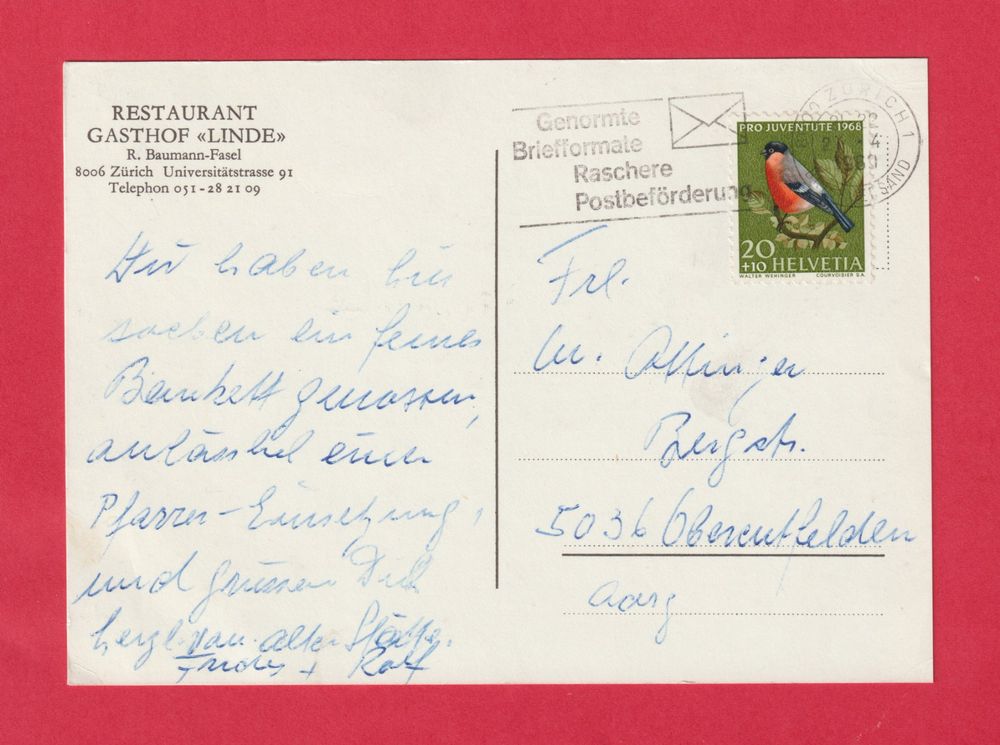 RESTAURANT
GASTHOF «LINDE»
R. Baumann-Fasel
8006 Zürich Universitätstrasse 91
Telephon 051-28 21 09
Wir haben hier
soeben ein feines
Bankett genossen,
anlässl. einer
Pfarrer-Einsetzung,
und grüssen Dich
herzl. von alter Stätte.
+ Rolf
Genormte
Briefformate
Raschere
Postbeförderung
ZÜRICH 1
1969
PRO JUVENTUTE 1968
20
+10 HELVETIA
WALTER WEHINGER COURVOISIER S.A.
Frl.
M. Attinger
Bergstr.
5036 Oberentfelden
Aarg